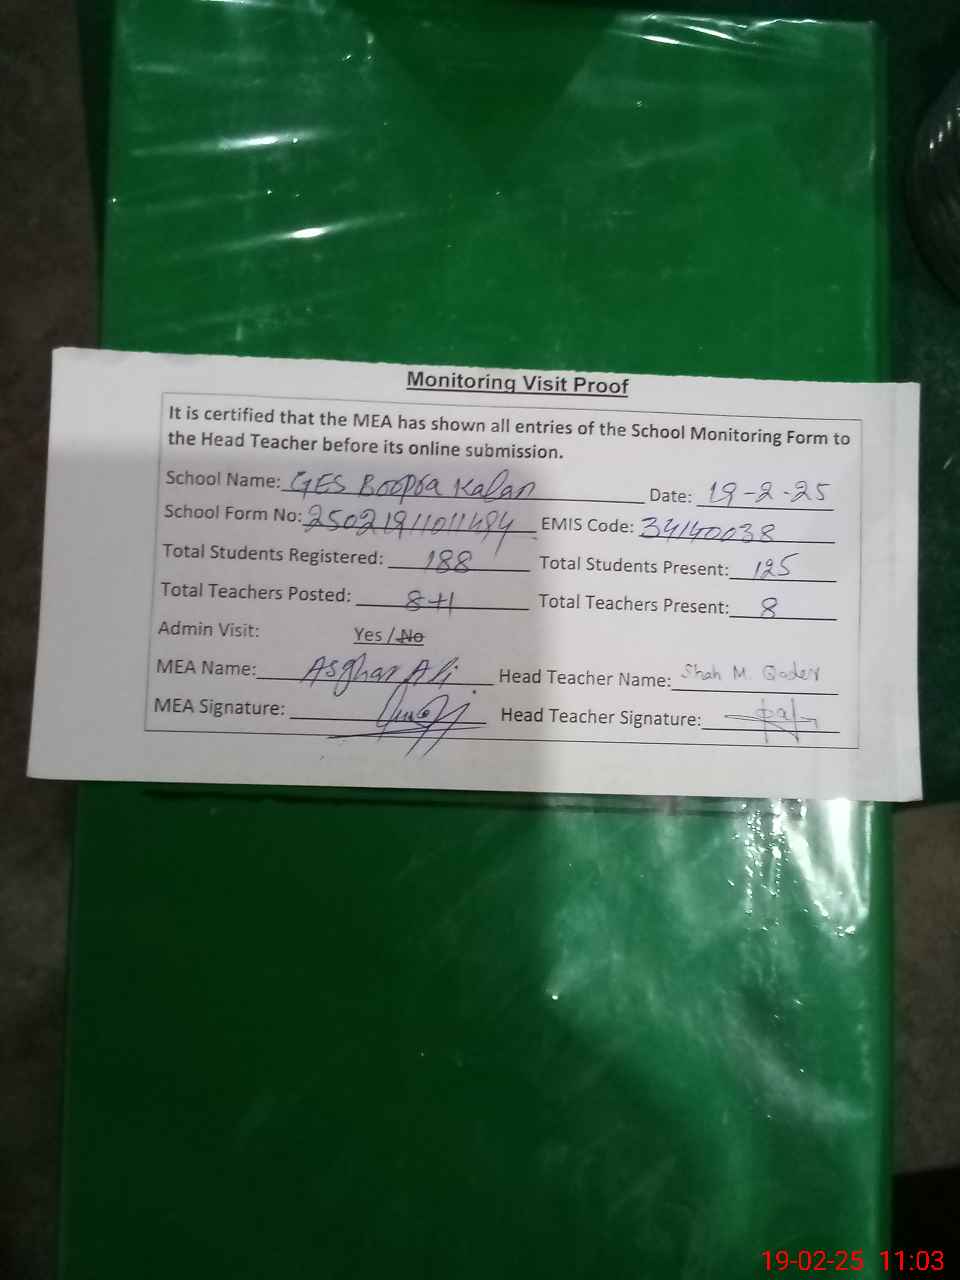 Monitoring Visit Proof
It is certified that the MEA has shown all entries of the School Monitoring Form to
the Head Teacher before its online submission.
School Name: GES Boopra Kalan Date: 19-2-25
School Form No: 25021911011494 EMIS Code: 34140038
Total Students Registered: 188 Total Students Present: 125
Total Teachers Posted: 8+1 Total Teachers Present: 8
Admin Visit: Yes / No
MEA Name: Asghar Ali Head Teacher Name: Shah M. Qader
MEA Signature: Head Teacher Signature:
19-02-25 11:03